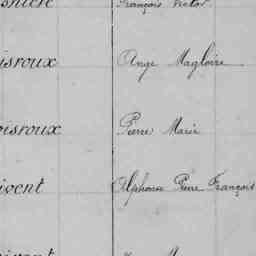 François Victor
isroux Ange Magloire
oisroux Pierre Marie
ivent Alphonse Pierre François